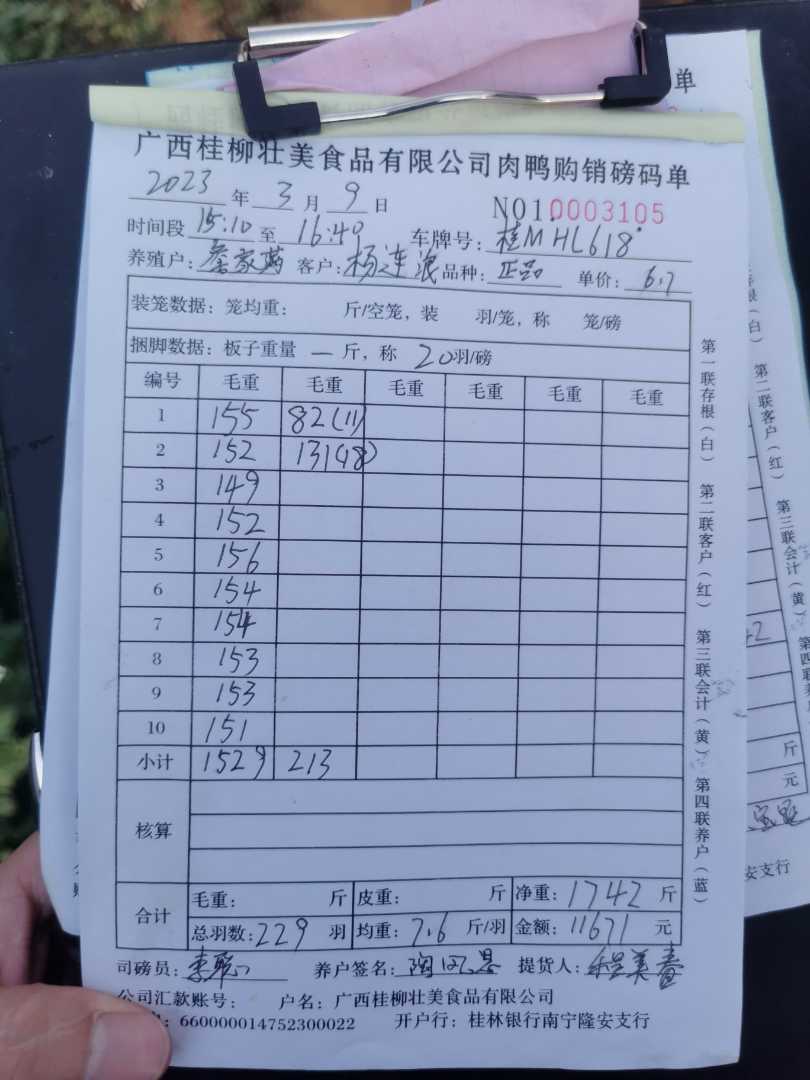 单
广西桂柳壮美食品有限公司肉鸭购销磅码单
2023 年 3 月 9 日 NO10003105
时间段 15:10 至 16:40 车牌号: 桂MHL618
养殖户: 客户: 杨连浪 品种: 正品 单价: 6.7
装笼数据: 笼均重: 斤/空笼, 装 羽/笼, 称 笼/磅
捆脚数据: 板子重量 一 斤, 称 20羽/磅
编号 毛重 毛重 毛重 毛重 毛重 毛重
1 155 82(11)
2 152 131(18)
3 149
4 152
5 156
6 154
7 154
8 153
9 153
10 151
小计 1529 213
核算
合计 毛重: 斤 皮重: 斤 净重: 1742 斤
总羽数: 229 羽 均重: 7.6 斤/羽 金额: 11671 元
司磅员: 养户签名: 提货人:
公司汇款账号: 户名: 广西桂柳壮美食品有限公司
660000014752300022 开户行: 桂林银行南宁隆安支行
第一联存根(白) 第二联客户(红) 第三联会计(黄) 第四联养户(蓝)
第二联客户(红) 第三联会计(黄)
斤
元
安支行